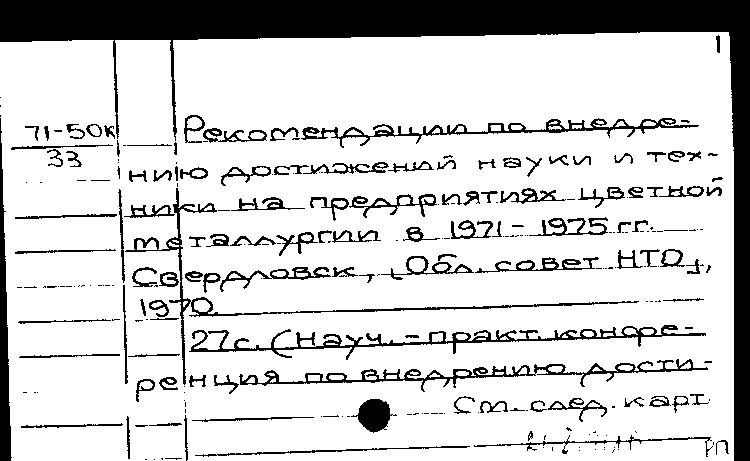 1
71-50к
33
Рекомендации по внедре-
нию достижений науки и тех-
ники на предприятиях цветной
металлургии в 1971-1975 гг.
Свердловск, [Обл. совет НТО],
1970.
27с. (Науч.-практ. конфе-
ренция по внедрению дости-
См. след. карт
РП